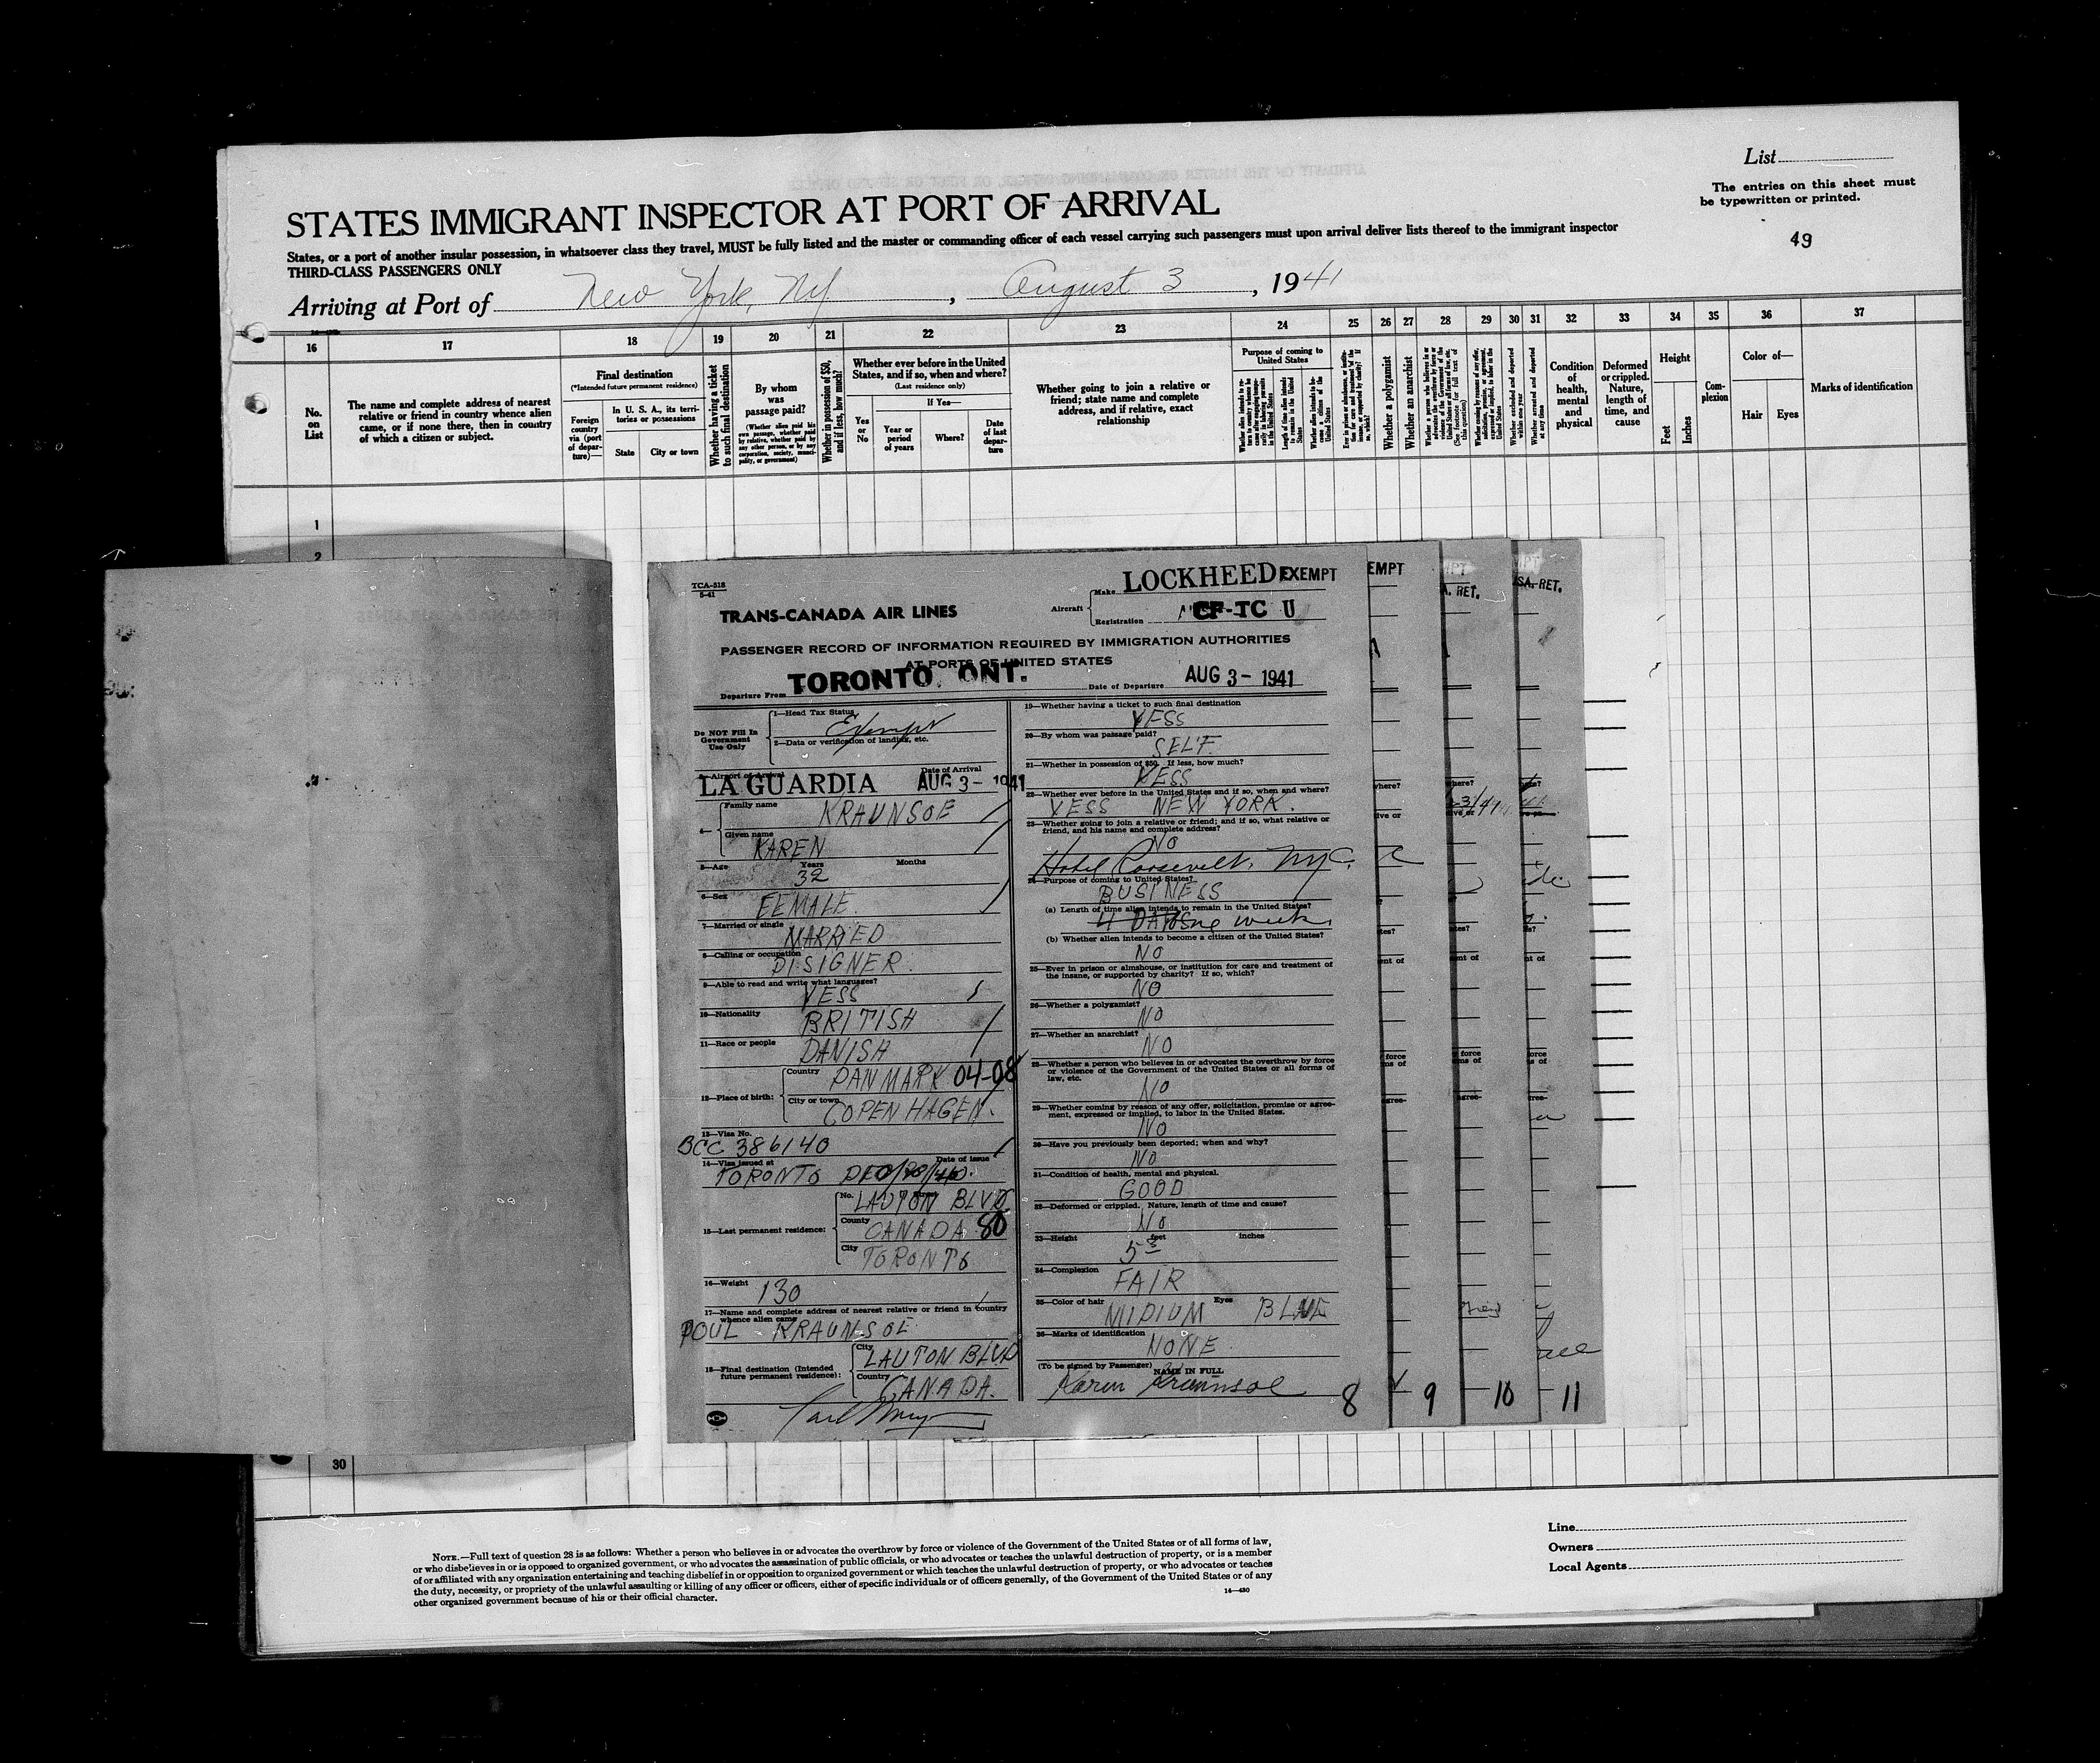 List
The entries on this sheet must
be typewritten or printed.
49
STATES IMMIGRANT INSPECTOR AT PORT OF ARRIVAL
States, or a port of another insular possession, in whatsoever class they travel, MUST be fully listed and the master or commanding officer of each vessel carrying such passengers must upon arrival deliver lists thereof to the immigrant inspector
THIRD-CLASS PASSENGERS ONLY
Arriving at Port of New York, NY, August 3, 1941
16 17 18 19 20 21 22 23 24 25 26 27 28 29 30 31 32 33 34 35 36 37
No. on List
The name and complete address of nearest
relative or friend in country whence alien
came, or if none there, then in country
of which a citizen or subject.
Final destination
(*Intended future permanent residence)
Foreign country via (port of departure)—
In U. S. A., its territories or possessions
State
City or town
Whether having a ticket to such final destination
By whom was passage paid?
(Whether alien paid his own passage, whether paid by relative, whether paid by any other person, or by any corporation, society, municipality, or government)
Whether in possession of $50, and if less, how much?
Whether ever before in the United
States, and if so, when and where?
(Last residence only)
Yes or No
If Yes—
Year or period of years
Where?
Date of last departure
Whether going to join a relative or
friend; state name and complete
address, and if relative, exact
relationship
Purpose of coming to United States
Length of time alien intends to remain in the United States
Whether alien intends to become a citizen of the United States
Whether a polygamist
Whether an anarchist
Whether arrested and deported at any time
Condition of health, mental and physical
Deformed or crippled. Nature, length of time, and cause
Height
Feet
Inches
Complexion
Color of—
Hair
Eyes
Marks of identification
1
2
TCA-518
5-41
TRANS-CANADA AIR LINES
Aircraft
Make LOCKHEED EXEMPT
Registration CF-TC U
PASSENGER RECORD OF INFORMATION REQUIRED BY IMMIGRATION AUTHORITIES
AT PORTS OF UNITED STATES
Departure From TORONTO, ONT. Date of Departure AUG 3- 1941
Do NOT Fill In
Government
Use Only
1—Head Tax Status Exempt
2—Data or verification of landing, etc.
3—Airport of Arrival LA GUARDIA Date of Arrival AUG 3- 1941
4—
Family name KRAUNSOE
Given name KAREN
5—Age Years 32 Months
6—Sex FEMALE
7—Married or single MARRIED
8—Calling or occupation DISIGNER
9—Able to read and write what languages? YESS
10—Nationality BRITISH
11—Race or people DANISH
12—Place of birth:
Country DANMARK 04-08
City or town COPENHAGEN.
13—Visa No. BCC 386140
14—Visa issued at TORONTO Date of issue
15—Last permanent residence:
No. Street LAUTON BLVD
County CANADA 80
City TORONTO
16—Weight 130
17—Name and complete address of nearest relative or friend in country
whence alien came
POUL KRAUNSOE
18—Final destination (Intended
future permanent residence):
City LAUTON BLVD
Country CANADA.
19—Whether having a ticket to such final destination
YESS
20—By whom was passage paid?
SELF
21—Whether in possession of $50. If less, how much?
YESS
22—Whether ever before in the United States and if so, when and where?
YESS NEW YORK.
23—Whether going to join a relative or friend; and if so, what relative or
friend, and his name and complete address?
NO
Hotel Roosevelt, NYC.
24—Purpose of coming to United States?
BUSINESS
(a) Length of time alien intends to remain in the United States?
4 DAYS one week
(b) Whether alien intends to become a citizen of the United States?
NO
25—Ever in prison or almshouse, or institution for care and treatment of
the insane, or supported by charity? If so, which?
NO
26—Whether a polygamist?
NO
27—Whether an anarchist?
NO
28—Whether a person who believes in or advocates the overthrow by force
or violence of the Government of the United States or all forms of
law, etc.
NO
29—Whether coming by reason of any offer, solicitation, promise or agree-
ment, expressed or implied, to labor in the United States.
NO
30—Have you previously been deported; when and why?
NO
31—Condition of health, mental and physical.
GOOD
32—Deformed or crippled. Nature, length of time and cause?
NO
33—Height feet inches
5
34—Complexion
FAIR
35—Color of hair MIDIUM Eyes BLUE
36—Marks of identification
NONE
(To be signed by Passenger) NAME IN FULL
Karen Kraunsoe
8 9 10 11
EMPT
A. RET.
USA.-RET.
30
NOTE.—Full text of question 28 is as follows: Whether a person who believes in or advocates the overthrow by force or violence of the Government of the United States or of all forms of law,
or who disbelieves in or is opposed to organized government, or who advocates the assassination of public officials, or who advocates or teaches the unlawful destruction of property, or is a member
of or affiliated with any organization entertaining and teaching disbelief in or opposition to organized government or which teaches the unlawful destruction of property, or who advocates or teaches
the duty, necessity, or propriety of the unlawful assaulting or killing of any officer or officers, either of specific individuals or of officers generally, of the Government of the United States or of any
other organized government because of his or their official character.
14—430
Line
Owners
Local Agents